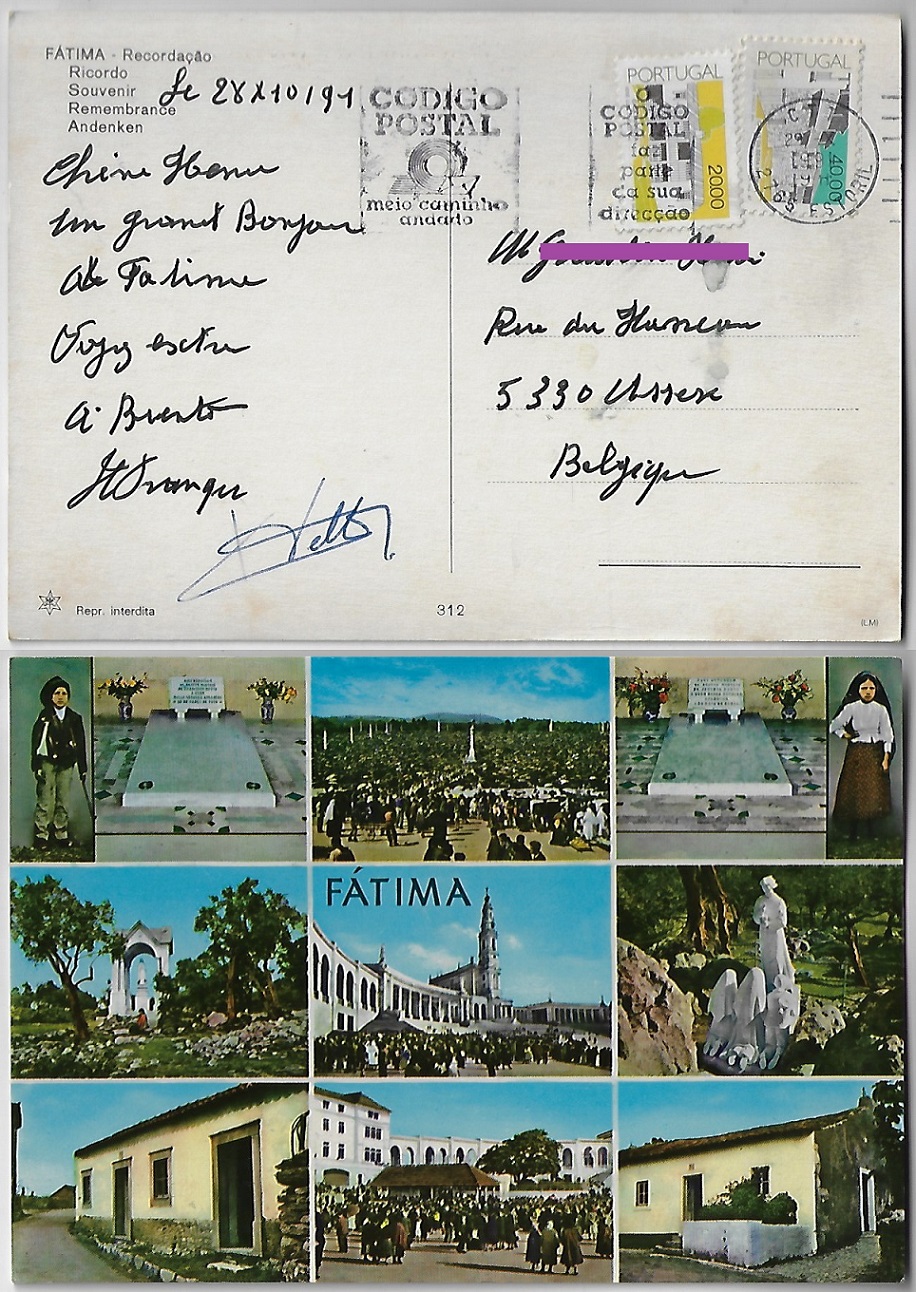 FÁTIMA - Recordação
Ricordo
Souvenir
Remembrance
Andenken
Le 28 X10/91
CÓDIGO
POSTAL
meio caminho
andado
O
CÓDIGO
POSTAL
faz
parte
da sua
direcção
PORTUGAL
2000
PORTUGAL
40,00
ESTORIL
Chère
un grand Bonjour
de Fatima
A Biento
M
Rue du
5330 Assese
Belgique
Repr. interdita
312
(LM)
FÁTIMA